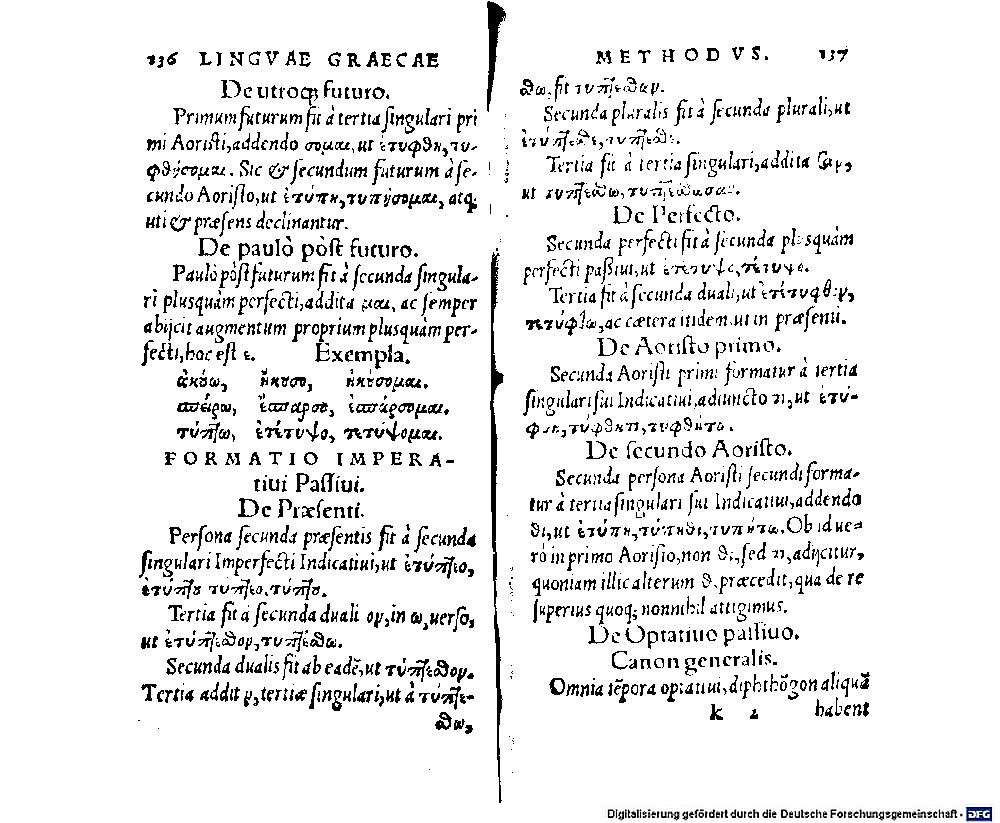 136 LINGVAE GRAECAE
De utroq; futuro.
Primum futurum fit à tertia singulari pri
mi Aoristi, addendo σομαι, ut ἐτυφθη, τυ-
φθήσομαι. Sic & secundum futurum à se-
cundo Aoristo, ut ἐτύπη, τυπήσομαι, atq;
uti & præsens declinantur.
De paulò pòst futuro.
Paulò pòst futurum fit à secunda singula-
ri plusquàm perfecti, addita μαι, ac semper
abijcit augmentum proprium plusquàm per-
fecti, hoc est ε. Exempla.
ἀκούω, ἤκουσο, ἠκούσομαι.
σπείρω, ἔσπαρσο, ἐσπάρσομαι.
τύπτω, ἐτέτυψο, τετύψομαι.
FORMATIO IMPERA-
tiui Passiui.
De Præsenti.
Persona secunda præsentis fit à secunda
singulari Imperfecti Indicatiui, ut ἐτύπτεο,
ἐτύπτου τύπτεο, τύπτου.
Tertia fit à secunda duali ον, in ω, uerso,
ut ἐτύπτεσθον, τυπτέσθω.
Secunda dualis fit ab eadẽ, ut τύπτεσθον.
Tertia addit ν, tertiæ singulari, ut à τυπτέ-
σθω,
METHODVS. 137
σθω, fit τυπτέσθων.
Secunda pluralis fit à secunda plurali, ut
ἐτύπτεσθε, τύπτεσθε.
Tertia fit à tertia singulari, addita σαν,
ut τυπτέσθω, τυπτέσθωσαν.
De Perfecto.
Secunda perfecti fit à secunda plusquàm
perfecti passiui, ut ἐτέτυψο, τέτυψο.
Tertia fit à secunda duali, ut ἐτέτυφθον,
τετύφθω, ac cætera itidem ut in præsenti.
De Aoristo primo.
Secunda Aoristi primi formatur à tertia
singulari sui Indicatiui, adiuncto τι, ut ἐτύ-
φθη, τύφθητι, τυφθήτω.
De secundo Aoristo.
Secunda persona Aoristi secundi forma-
tur à tertia singulari sui Indicatiui, addendo
θι, ut ἐτύπη, τύπηθι, τυπήτω. Ob id ue-
rò in primo Aoristo, non θι, sed τι, adijcitur,
quoniam illic alterum θ, præcedit, qua de re
superius quoq; nonnihil attigimus.
De Optatiuo passiuo.
Canon generalis.
Omnia tẽpora optatiui, diphthõgon aliquã
k 2 habent
Digitalisierung gefördert durch die Deutsche Forschungsgemeinschaft - DFG